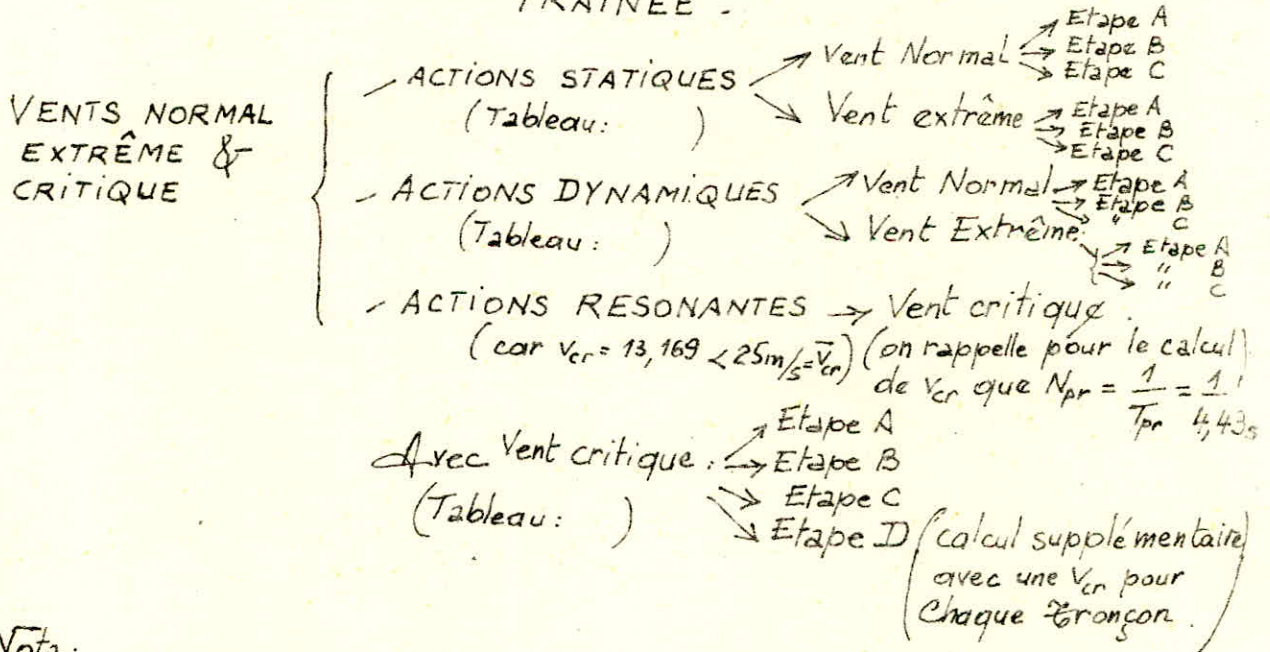 TRAINEE -
VENTS NORMAL
EXTRÊME &
CRITIQUE
- ACTIONS STATIQUES
(Tableau: )
Vent Normal
Etape A
Etape B
Etape C
Vent extrême
Etape A
Etape B
Etape C
- ACTIONS DYNAMIQUES
(Tableau: )
Vent Normal
Etape A
Etape B
" C
Vent Extrême
Etape A
" B
" C
- ACTIONS RESONANTES → Vent critique.
(car Vcr = 13,169 < 25m/s = V̅cr) (on rappelle pour le calcul)
de Vcr que Npr = 1/Tpr = 1/4,43s
Avec Vent critique :
(Tableau: )
Etape A
Etape B
Etape C
Etape D (calcul supplémentaire
avec une Vcr pour
Chaque Tronçon.)
Nota: